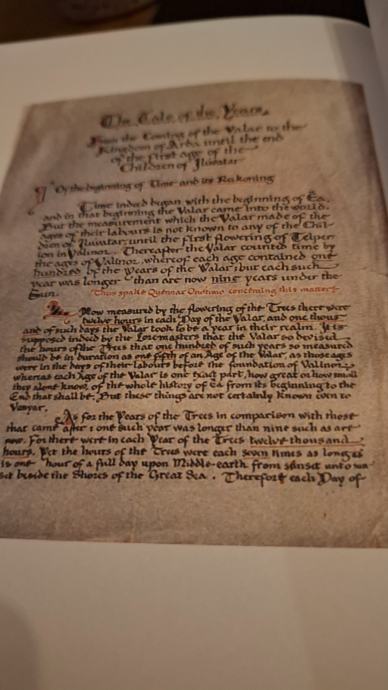 The Tale of the Years
From the Coming of the Valar to the
Kingdom of Arda until the end
of the First Age of the
Children of Ilúvatar
Of the beginning of Time and its Reckoning
Time indeed began with the beginning of Ea,
and in that beginning the Valar came into the world.
But the measurement which the Valar made of the
ages of their labours is not known to any of the Chil-
dren of Ilúvatar, until the first flowering of Telper-
ion in Valinor. Thereafter the Valar counted time by
the ages of Valinor, whereof each age contained one
hundred of the Years of the Valar; but each such
year was longer than are now nine years under the
Sun.
Thus spake Quennar Onótimo concerning this matter
Now measured by the flowering of the Trees there were
twelve hours in each Day of the Valar, and one thous-
and of such days the Valar took to be a year in their realm. It is
supposed indeed by the Loremasters that the Valar so devised
the hours of the Trees that one hundred of such years so measured
should be in duration as one fifth of an Age of the Valar, as those ages
were in the days of their labours before the foundation of Valinor,
whereas each Age of the Valar is one part, how great or how small
they alone know, of the whole history of Ea from its beginning to the
End that shall be. But these things are not certainly known even to
Vanyar.
As for the Years of the Trees in comparison with those
that came after: one such year was longer than nine such as are
now. For there were in each Year of the Trees twelve thousand
hours. Yet the hours of the Trees were each seven times as long as
is one hour of a full day upon Middle-earth from sunset unto sun-
set beside the Shores of the Great Sea. Therefore each Day of